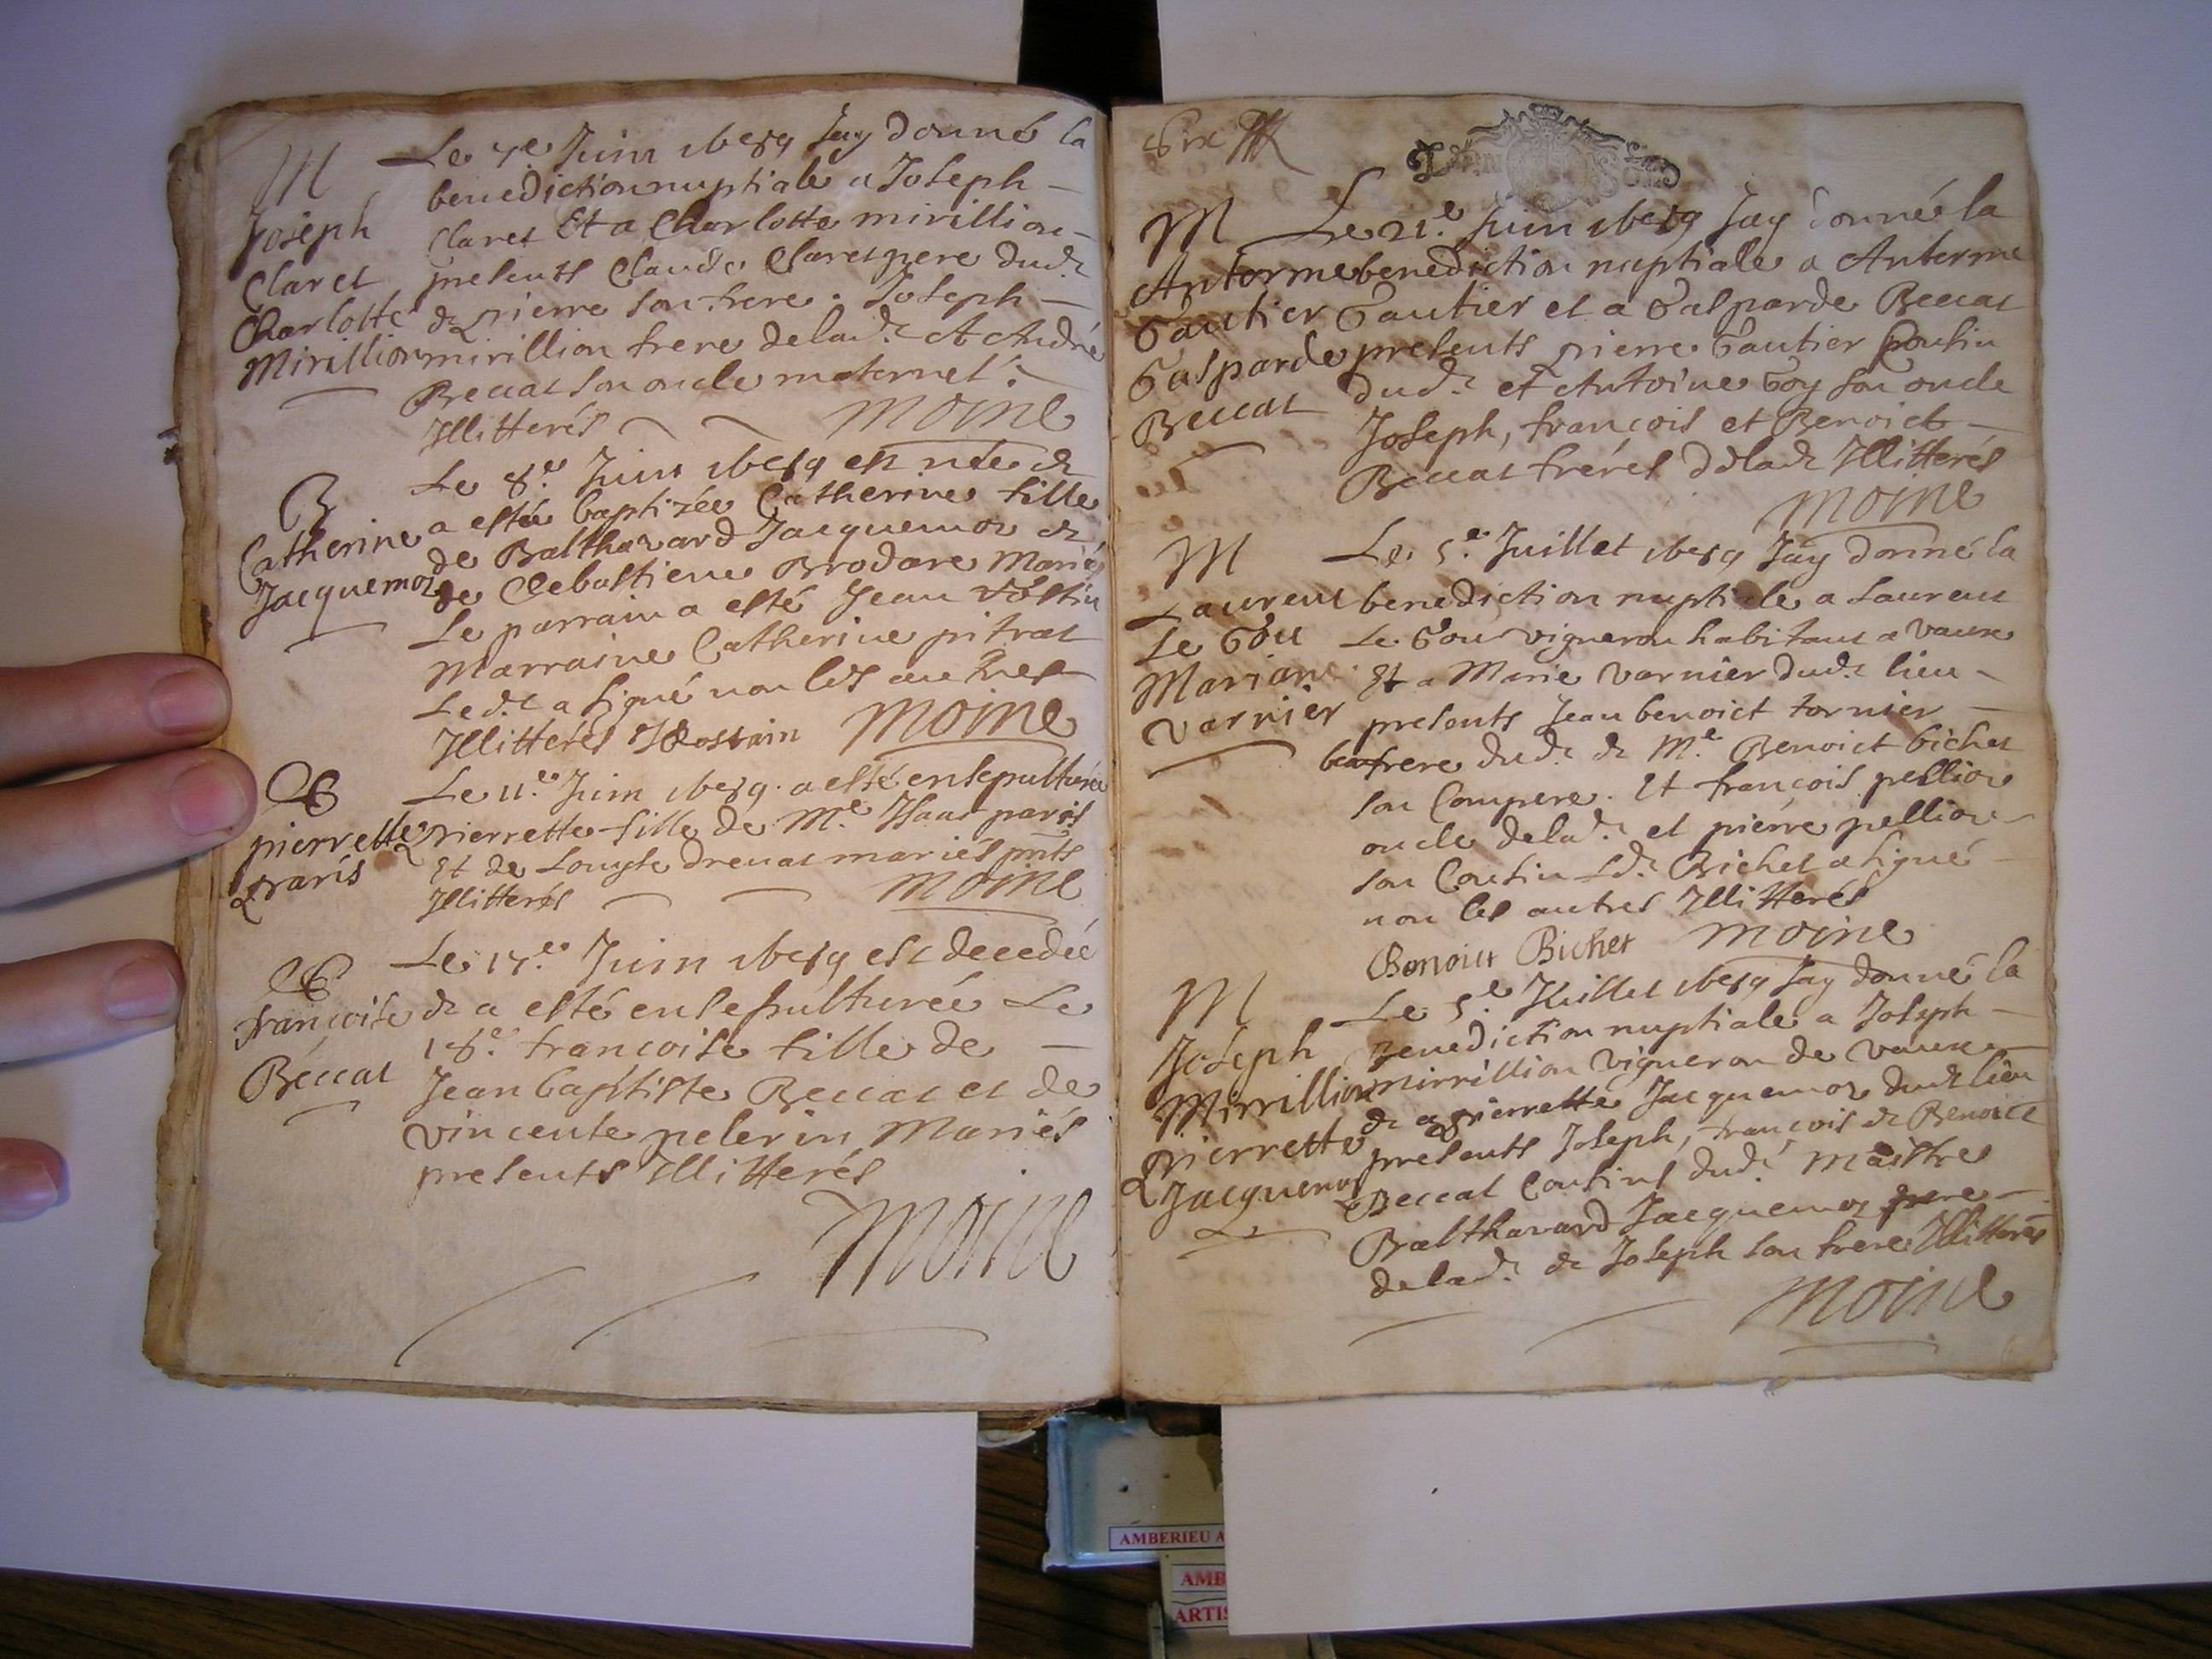 M
Joseph
Claret
Charlotte
Mirillion
Le 7e Juin 1689 Jay donné la
benediction nuptiale a Joseph
Claret Et a Charlotte mirillion
presents Claude Claret pere dud.
& pierre son frere. Joseph
mirillion frere delad. et André
Beccat son oncle maternel.
Illitterés
moine
B
Catherine
Jacquemoz
Le 8e Juin 1689 est née &
a esté baptizée Catherine fille
de Balthazard Jacquemoz &
de Cebastiene Brodare Mariés
Le parrain a esté Jean
Marraine Catherine pitrat
Led. a signé non les autres
Illitterés
moine
pierrette
paris
Le 11e Juin 1689. a esté ensepulturée
pierrette fille de Me Isaac paris
Et de drevat mariés pnts
Illitterés
moine
françoise
Beccat
Le 17e Juin 1689 est decedée
& a esté ensepulturée Le
18e françoise fille de
Jean baptiste Beccat et de
vincente pelerin Mariés
presents Illitterés
moine
Six
M
Anterme
Gautier
Gasparde
Beccat
Le 21e Juin 1689 Jay donné la
benediction nuptiale a Anterme
Gautier et a Gasparde Beccat
presents pierre Gautier Cousin
dud. et Antoine Goy son oncle
Joseph, francois et Benoict
Beccat fréres delad. Illitterés
moine
M
Laurent
Le Gou
Mariane
varnier
Le 5e Juillet 1689 Jay donné la
benediction nuptiale a Laurent
Le Gou vigneron habitant a vaux
Et a Marie varnier dud. lieu
presents Jean benoict tornier
beaufrere dud. & Me Benoict bichet
son Compere. Et françois pellion
oncle delad. et pierre pellion
son Cousin Ld. Bichet a signé
non les autres Illitterés
Benoict Bichet
moine
M
Joseph
Mirrillion
pierrette
Jacquemoz
Le 5e Juillet 1689 Jay donné la
benediction nuptiale a Joseph
mirrillion vigneron de vaux
& a pierrette Jacquemoz dud. lieu
presents Joseph, francois & Benoict
Beccat Cousins dud. Maistre
Balthazard Jacquemoz pere
delad. & Joseph son frere Illitterés
moine
AMBERIEU A
AMB
ARTIS